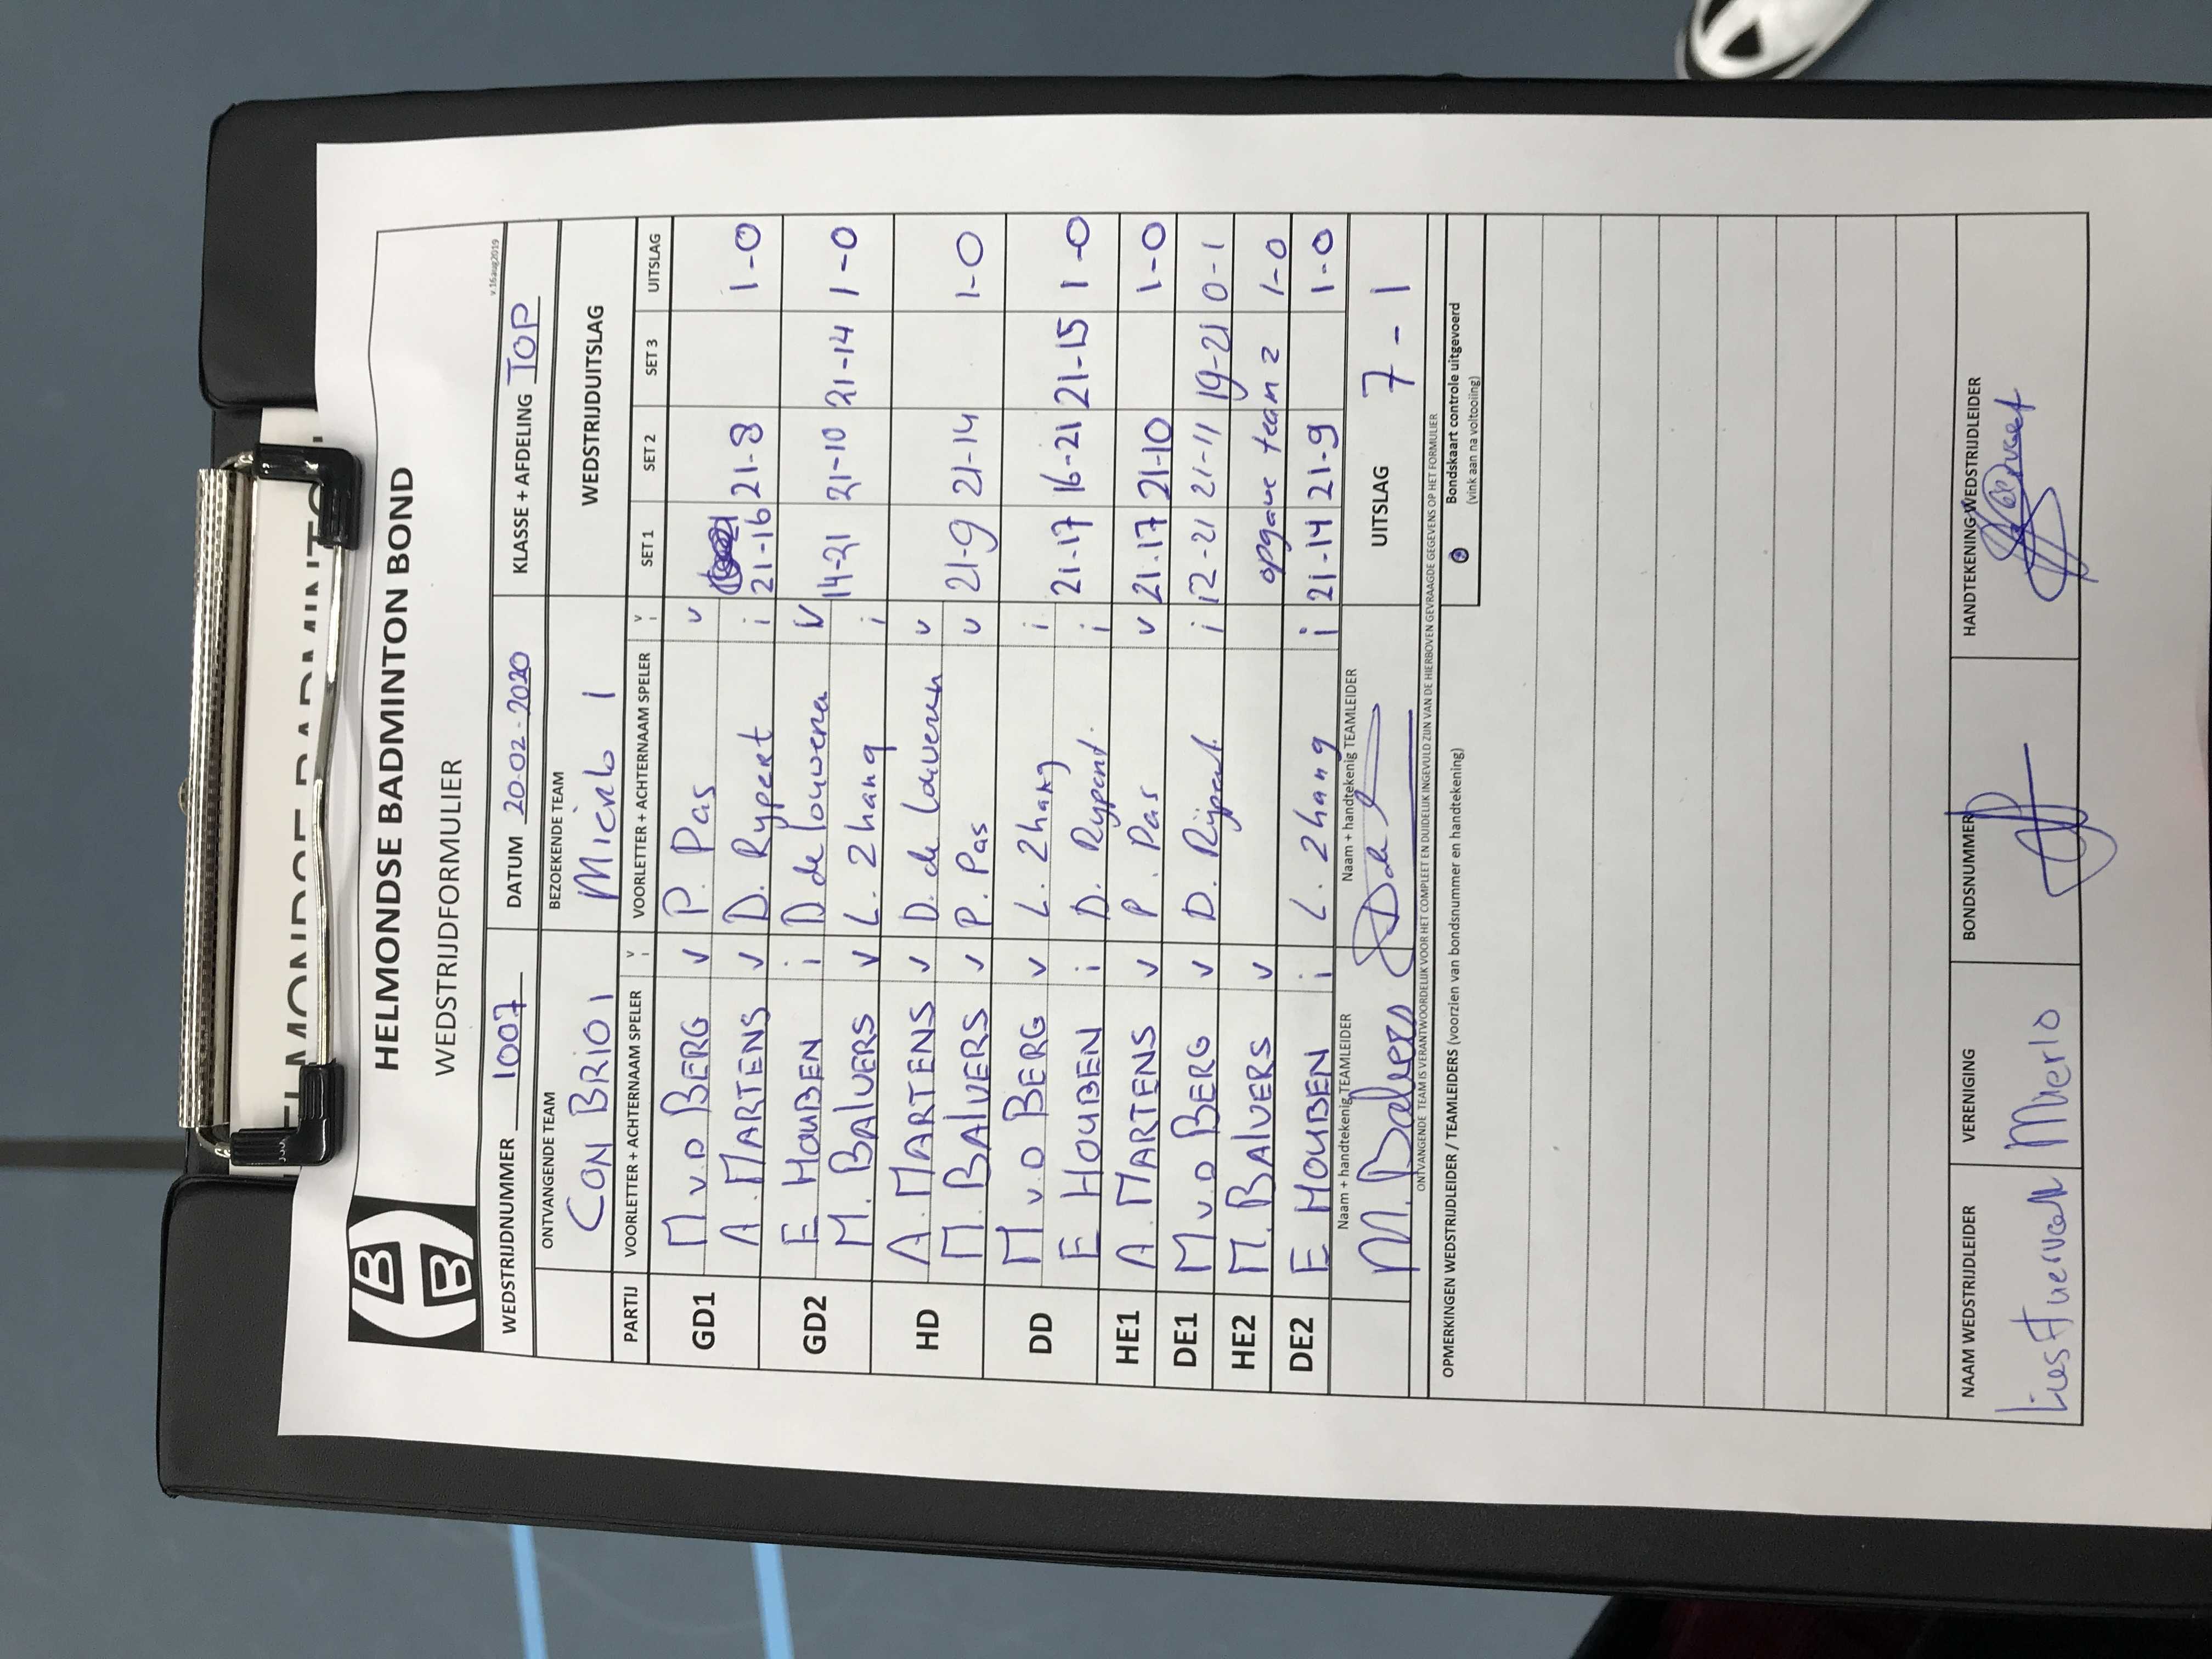 HELMONDSE BADMINTON BOND
WEDSTRIJDFORMULIER
v.16aug2019
WEDSTRIJDNUMMER 1007 DATUM 20-02-2020 KLASSE + AFDELING TOP
ONTVANGENDE TEAM BEZOEKENDE TEAM WEDSTRIJDUITSLAG
CON BRIO 1 Mierlo 1
PARTIJ VOORLETTER + ACHTERNAAM SPELER V i VOORLETTER + ACHTERNAAM SPELER V i SET 1 SET 2 SET 3 UITSLAG
GD1 M v.D BERG v P. Pas v
A. MARTENS v D. Rypert i 21-16 21-8 1-0
GD2 E HOUBEN i D de louwena v
M. BALVERS v L. Zhang i 14-21 21-10 21-14 1-0
HD A. MARTENS v D. de louweren v
M. BALVERS v P. Pas v 21-9 21-14 1-0
DD M v.D BERG v L. Zhang i
E HOUBEN i D. Rypert. i 21-17 16-21 21-15 1-0
HE1 A. MARTENS v P. Pas v 21-17 21-10 1-0
DE1 M v.D BERG v D. Rijpert. i 12-21 21-11 19-21 0-1
HE2 M. BALVERS v opgave team 2 1-0
DE2 E HOUBEN i L. Zhang i 21-14 21-9 1-0
Naam + handtekenig TEAMLEIDER Naam + handtekenig TEAMLEIDER UITSLAG 7-1
M. Balvers
ONTVANGENDE TEAM IS VERANTWOORDELIJK VOOR HET COMPLEET EN DUIDELIJK INGEVULD ZIJN VAN DE HIERBOVEN GEVRAAGDE GEGEVENS OP HET FORMULIER
OPMERKINGEN WEDSTRIJDLEIDER / TEAMLEIDERS (voorzien van bondsnummer en handtekening)
Bondskaart controle uitgevoerd
(vink aan na voltooiing)
NAAM WEDSTRIJDLEIDER VERENIGING BONDSNUMMER HANDTEKENING WEDSTRIJDLEIDER
Mierlo